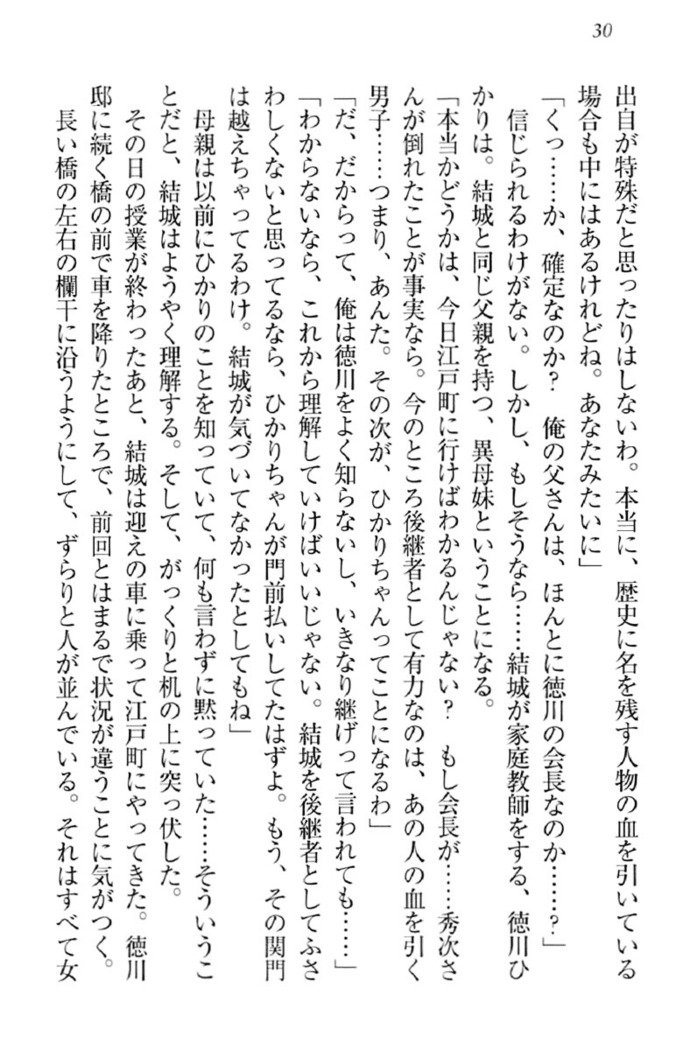 30
出自が特殊だと思ったりはしないわ。本当に、歴史に名を残す人物の血を引いている
場合も中にはあるけれどね。あなたみたいに」
「くっ……か、確定なのか？　俺の父さんは、ほんとに徳川の会長なのか……？」
信じられるわけがない。しかし、もしそうなら……結城が家庭教師をする、徳川ひ
かりは。結城と同じ父親を持つ、異母妹ということになる。
「本当かどうかは、今日江戸町に行けばわかるんじゃない？　もし会長が……秀次さ
んが倒れたことが事実なら。今のところ後継者として有力なのは、あの人の血を引く
男子……つまり、あんた。その次が、ひかりちゃんってことになるわ」
「だ、だからって、俺は徳川をよく知らないし、いきなり継げって言われても……」
「わからないなら、これから理解していけばいいじゃない。結城を後継者としてふさ
わしくないと思ってるなら、ひかりちゃんが門前払いしてたはずよ。もう、その関門
は越えちゃってるわけ。結城が気づいてなかったとしてもね」
母親は以前にひかりのことを知っていて、何も言わずに黙っていた……そういうこ
とだと、結城はようやく理解する。そして、がっくりと机の上に突っ伏した。
その日の授業が終わったあと、結城は迎えの車に乗って江戸町にやってきた。徳川
邸に続く橋の前で車を降りたところで、前回とはまるで状況が違うことに気がつく。
長い橋の左右の欄干に沿うようにして、ずらりと人が並んでいる。それはすべて女